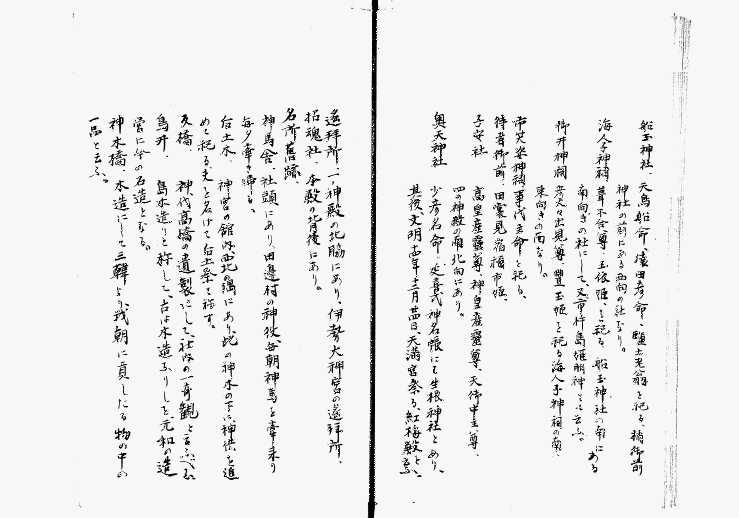 船玉神社、天鳥船命、猿田彦命、塩土老翁を祀る、橘御前
神社の前にある西向の社なり。
海人子神祠、葺不合尊、玉依姫、を祀る、船玉神社の南にある
南向きの社にして、又市杵島姫明神とも云ふ。
御井神祠、彦火々出見尊、豊玉姫を祀る海人子神祠の南、
東向きの西なり。
市戎姿神祠、事代主命を祀る、
侍者御前、田裳見宿禰市姫、
子安社、高皇産霊尊、神皇産霊尊、天御中主尊、
四の神殿の南北向にあり。
奥天神社、少彦名命、延喜式神名帳にも生根神社とあり、
其後文明十四年十二月廿四日、天満宮祭る、紅梅殿と云
遥拝所、一ノ神殿の北脇にあり、伊勢大神宮の遥拝所、
招魂社、本殿の背後にあり。
名所舊蹟、
神馬舎、社頭にあり、田邊村の神役毎朝神馬を牽き来り
毎夕牽き帰る、
白土水、神宮の館内西北の隅にあり、此の神水の下に神供を進
めて祀る丈と名けて白土祭と称す。
反橋、神代高橋の遺製にして、社内の一奇観と云ふべし
鳥井、島木造りと称して、古は木造なりしを元和の造
営に今の石造となる。
神木橋、木造にして三韓より我朝に貢したる物の中の
一品と云ふ。